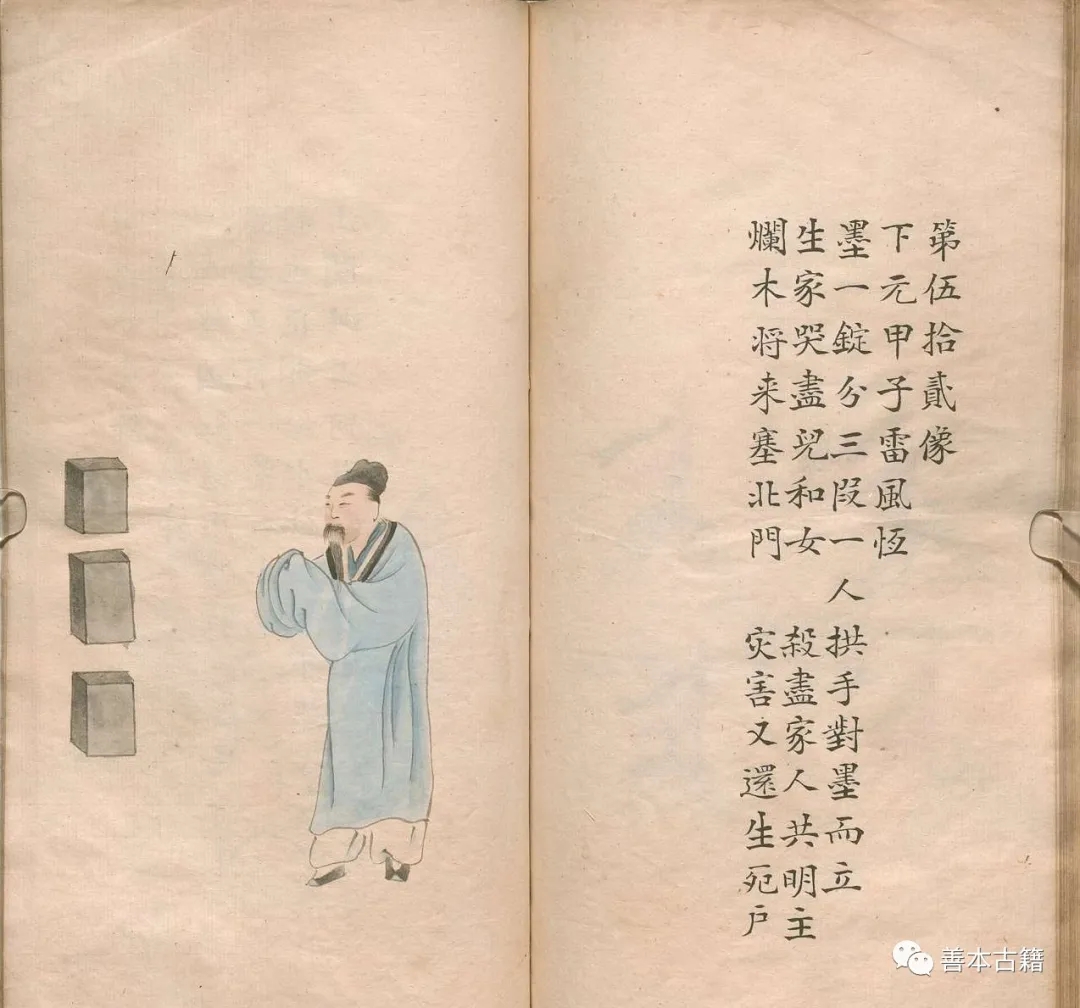 第伍拾貳像
下元甲子雷風恆
墨一錠分三段一人拱手對墨而立
生家哭盡兒和女 殺盡家人共明主
爛木将来塞北門 灾害又還生死户
善本古籍